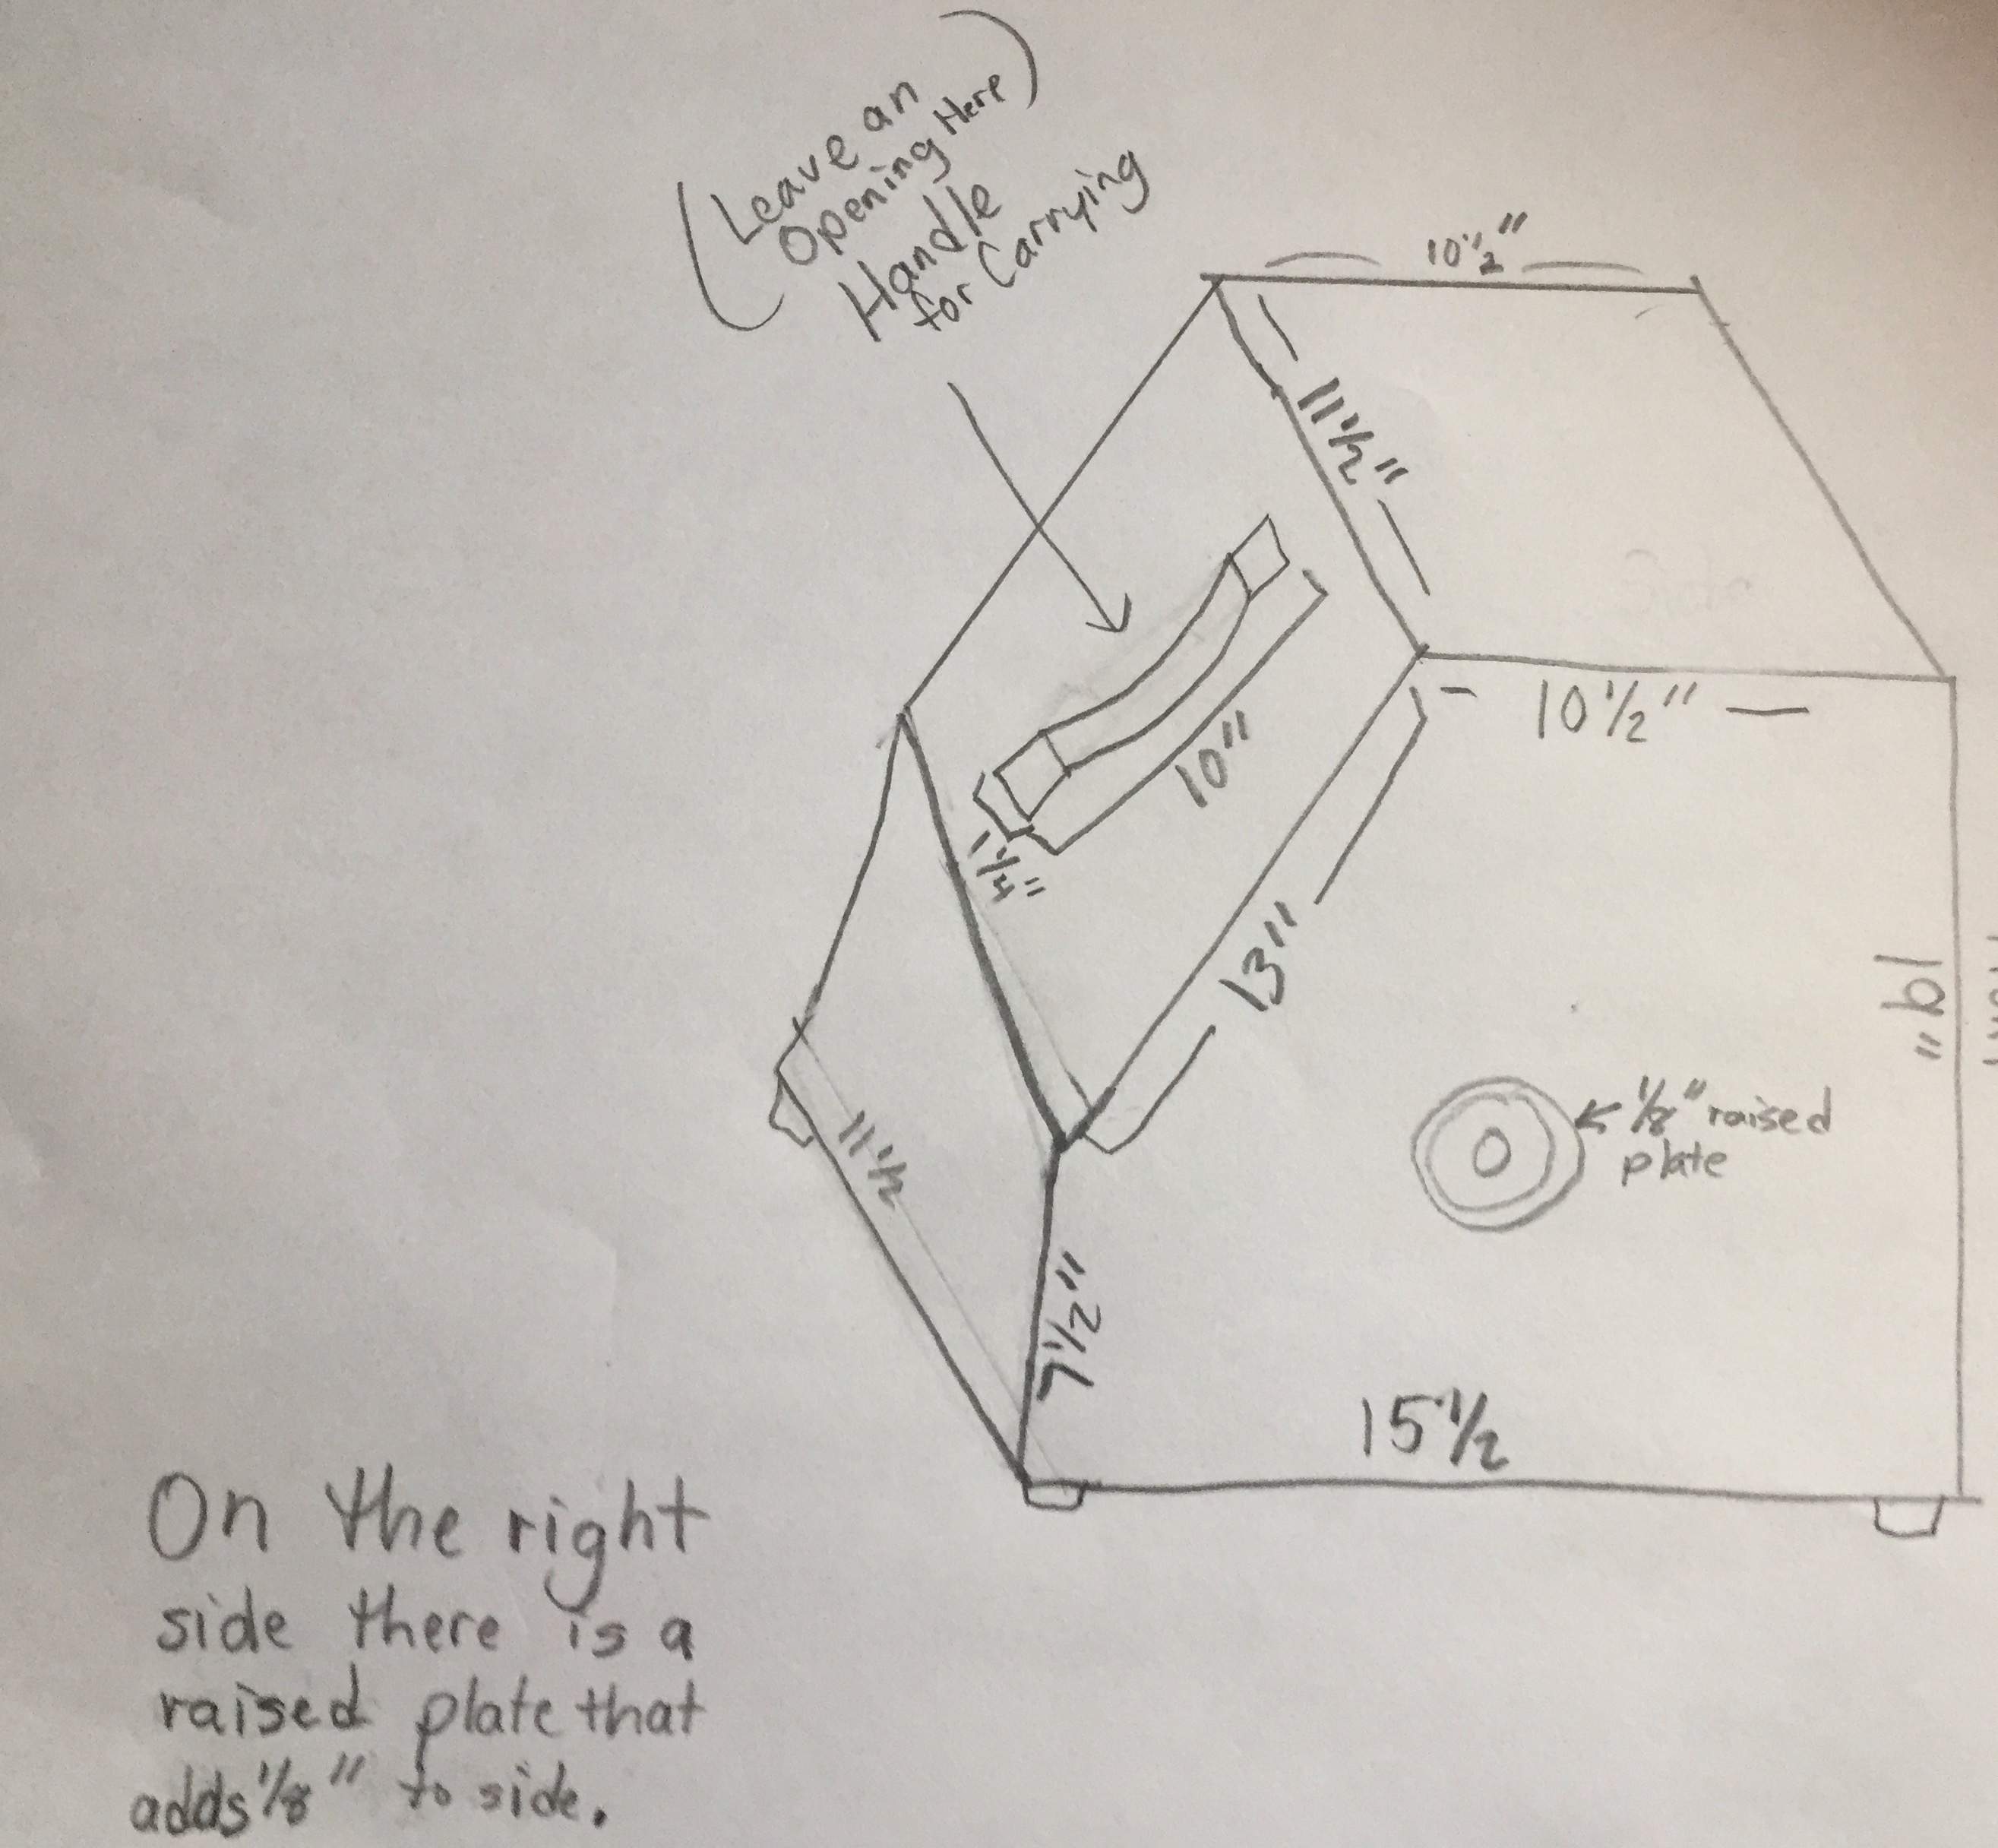 (Leave an
Opening Here)
Handle
for Carrying
10 1/2"
11 1/2"
10 1/2"
10"
1 1/4"
13"
19"
1/8" raised
plate
11 1/2
7 1/2"
15 1/2
On the right
side there is a
raised plate that
adds 1/8" to side.